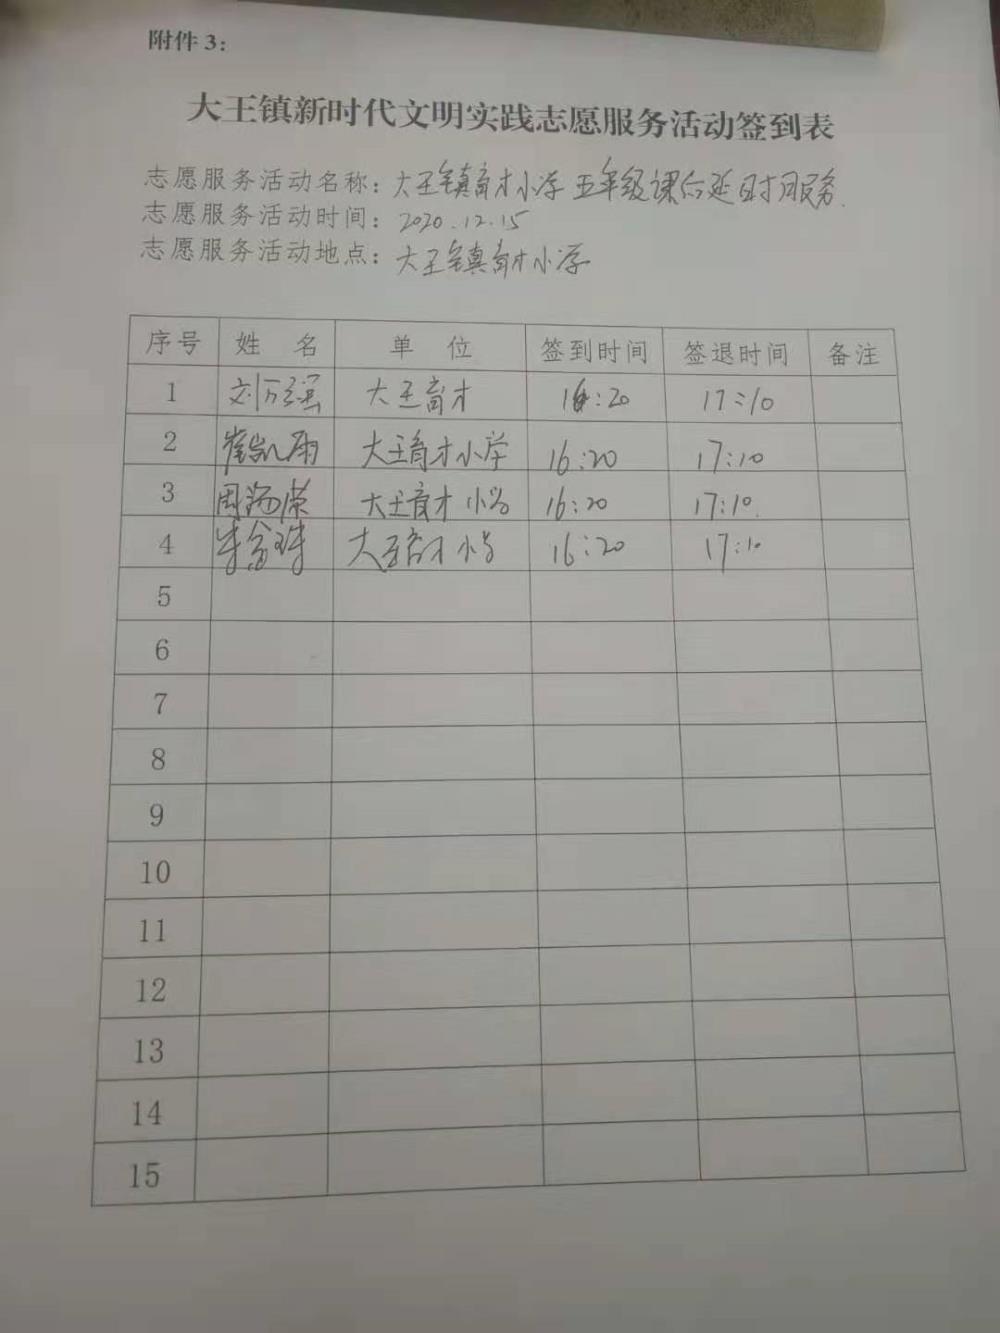 附件3：
大王镇新时代文明实践志愿服务活动签到表
志愿服务活动名称：大王镇育才小学五年级课后延时服务.
志愿服务活动时间：2020.12.15
志愿服务活动地点：大王镇育才小学
序号 姓 名 单 位 签到时间 签退时间 备注
1 刘万强 大王育才 16:20 17:10
2 崔凯雨 大王育才小学 16:20 17:10
3 周 荣 大王育才小学 16:20 17:10.
4 大王育才小学 16:20 17:10
5
6
7
8
9
10
11
12
13
14
15